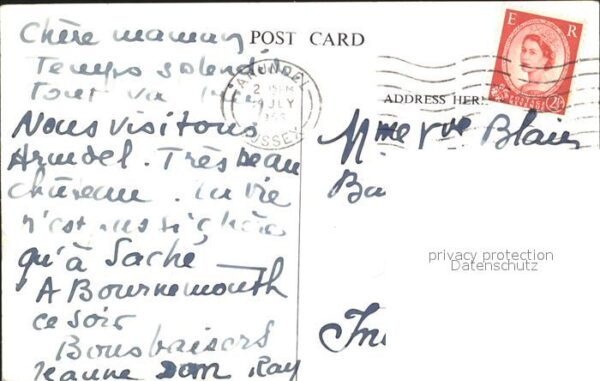 Chère maman
POST CARD
Temps splendide
Tout va bien
Nous visitons
Arundel. Très beau
château. La vie
n'est pas si chère
qu'à Saché
A Bournemouth
ce soir
Bons baisers
Jeanne Dom Ray
ARUNDEL
2 15 PM
JLY
SUSSEX
E R
POSTAGE REVENUE
2½D
ADDRESS HERE
Mme Vve Blain
Ba
privacy protection
Datenschutz